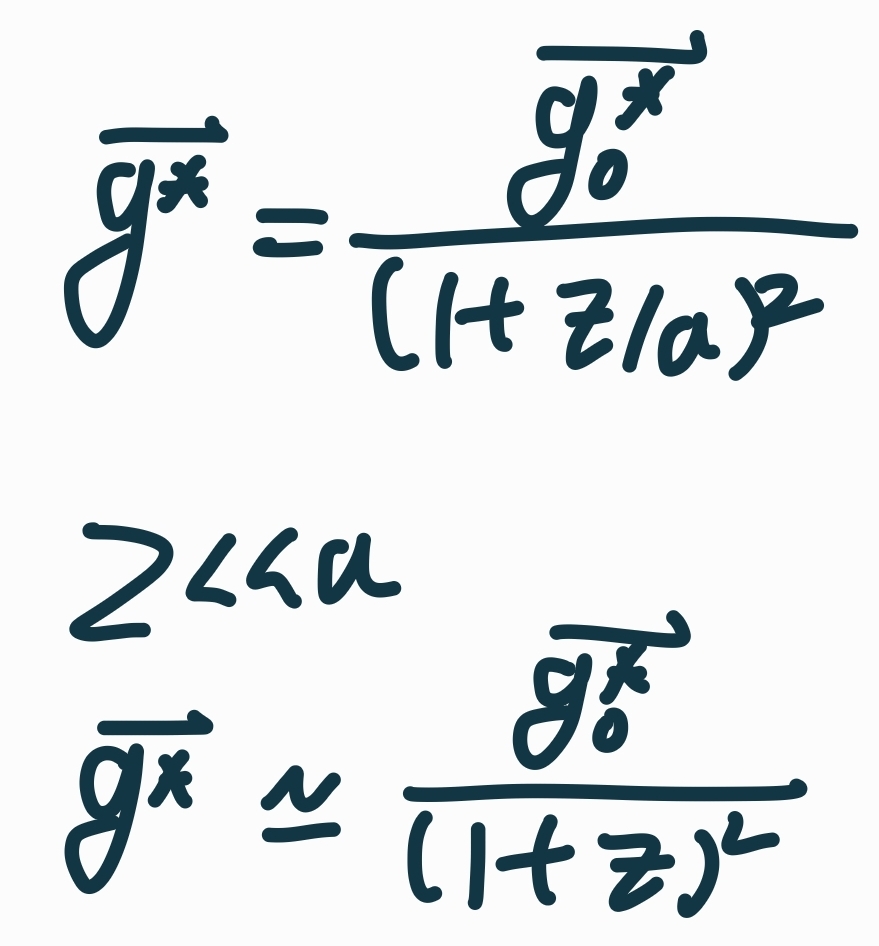 $\overrightarrow{g^*} = \frac{\overrightarrow{g_0^*}}{(1+z/a)^2}$
$z << a$
$\overrightarrow{g^*} \simeq \frac{\overrightarrow{g_0^*}}{(1+z)^2}$